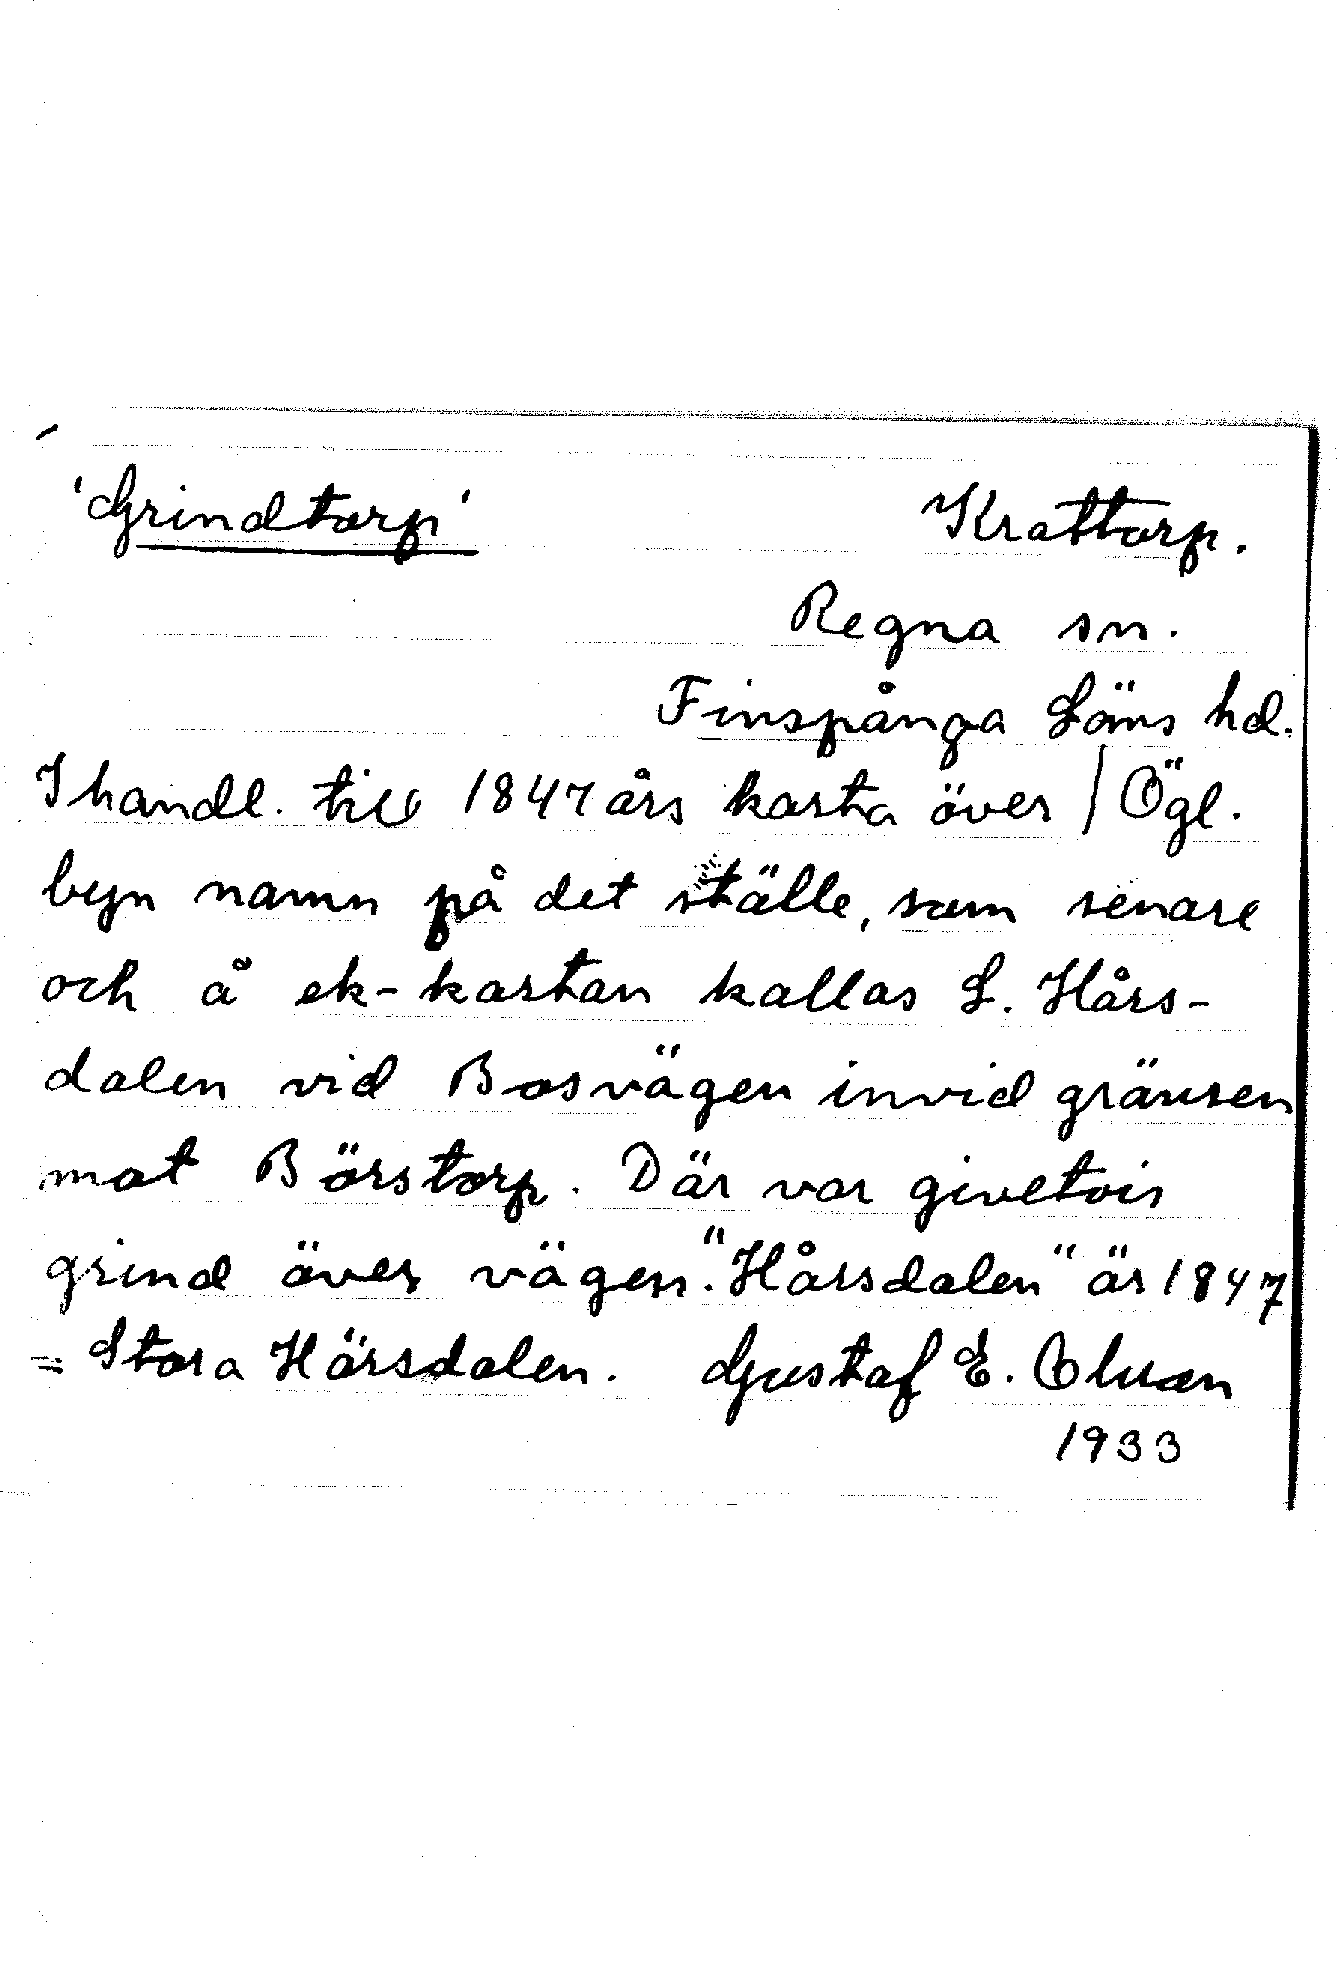 'Grindtorp' Krattorp.
Regna sn.
Finspånga Läns hd.
I handl. till 1847 års karta över / Ögl.
byn namn på det ställe, som senare
och å ek-kartan kallas L. Hårs-
dalen vid Bosvägen invid gränsen
mot Börstorp. Där var givetvis
grind över vägen. "Hårsdalen" är 1847
= Stora Hårsdalen. Gustaf E. Olsson
1933